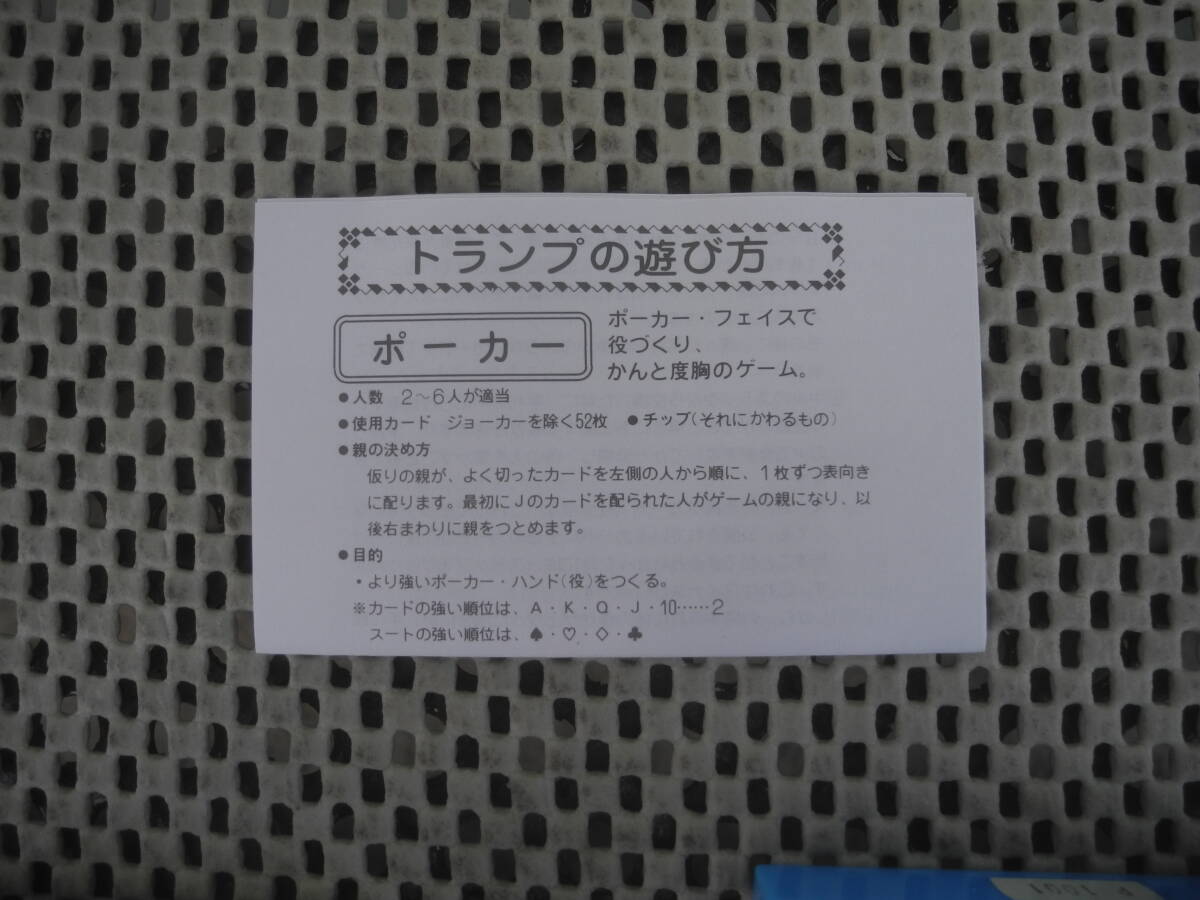 トランプの遊び方
ポーカー
ポーカー・フェイスで
役づくり、
かんと度胸のゲーム。
●人数 2～6人が適当
●使用カード ジョーカーを除く52枚 ●チップ(それにかわるもの)
●親の決め方
仮りの親が、よく切ったカードを左側の人から順に、1枚ずつ表向き
に配ります。最初にJのカードを配られた人がゲームの親になり、以
後右まわりに親をつとめます。
●目的
・より強いポーカー・ハンド(役)をつくる。
※カードの強い順位は、A・K・Q・J・10……2
スートの強い順位は、♠・♡・◇・♣